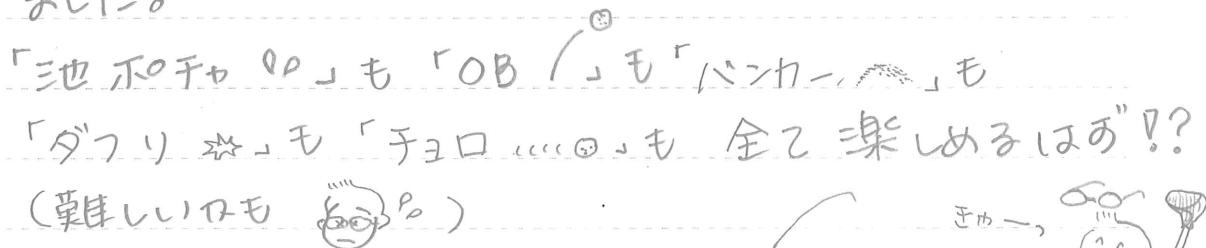 ました。
「池ポチャ」も「OB」も「バンカー」も
「ダフリ」も「チョロ……」も 全て楽しめるはず!?
(難しいかも)
きゃーっ